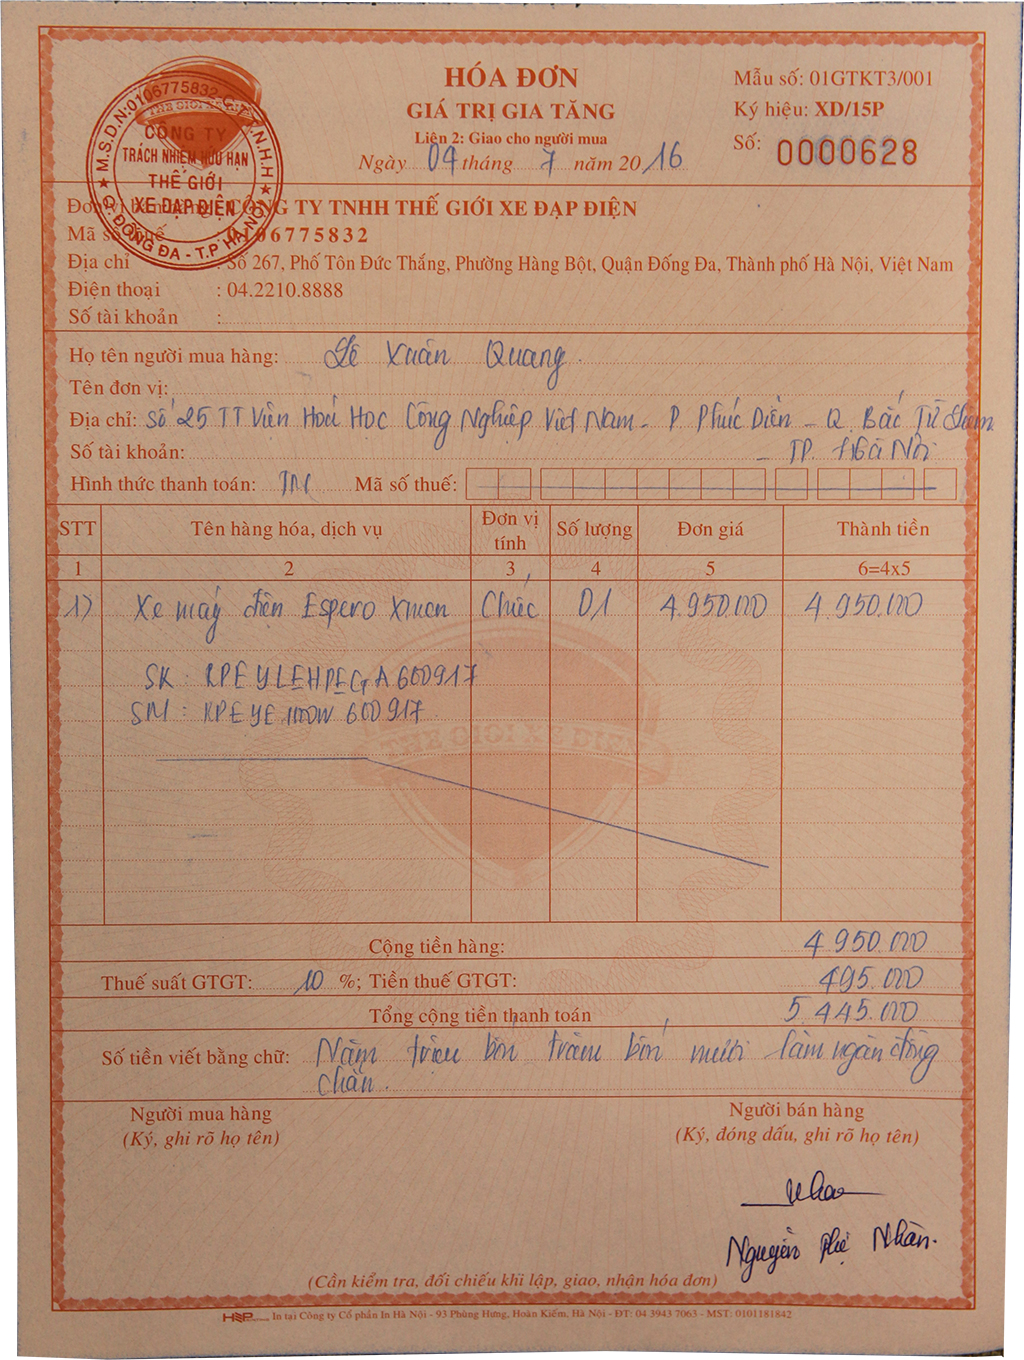 HÓA ĐƠN
GIÁ TRỊ GIA TĂNG
Liên 2: Giao cho người mua
Ngày 04 tháng 7 năm 2016
Mẫu số: 01GTKT3/001
Ký hiệu: XD/15P
Số: 0000628
M.S.D.N:0106775832-C.T.T.N.H.H
THE GIOI XE ĐIEN
CÔNG TY
TRÁCH NHIỆM HỮU HẠN
THẾ GIỚI
XE ĐẠP ĐIỆN
Q. ĐỐNG ĐA - T.P HÀ NỘI
Đơn vị bán hàng: CÔNG TY TNHH THẾ GIỚI XE ĐẠP ĐIỆN
Mã số thuế : 0106775832
Địa chỉ : Số 267, Phố Tôn Đức Thắng, Phường Hàng Bột, Quận Đống Đa, Thành phố Hà Nội, Việt Nam
Điện thoại : 04.2210.8888
Số tài khoản :
Họ tên người mua hàng: Lê Xuân Quang.
Tên đơn vị:
Địa chỉ: Số 25 TT Viện Hoá Học Công Nghiệp Việt Nam - P Phúc Diễn - Q. Bắc Từ Liêm
- TP. Hà Nội
Số tài khoản:
Hình thức thanh toán: TM Mã số thuế:
STT Tên hàng hóa, dịch vụ Đơn vị tính Số lượng Đơn giá Thành tiền
1 2 3 4 5 6=4x5
1) Xe máy điện Espero Xmen Chiếc 01 4.950.000 4.950.000
SK: RPEYLEHPEGA600917
SM: RPEYE1000W600917
THE GIOI XE DIEN
Cộng tiền hàng: 4.950.000
Thuế suất GTGT: 10 %; Tiền thuế GTGT: 495.000
Tổng cộng tiền thanh toán 5.445.000
Số tiền viết bằng chữ: Năm triệu bốn trăm bốn mươi lăm ngàn đồng
chẵn.
Người mua hàng Người bán hàng
(Ký, ghi rõ họ tên) (Ký, đóng dấu, ghi rõ họ tên)
Nguyễn Thị Nhàn.
(Cần kiểm tra, đối chiếu khi lập, giao, nhận hóa đơn)
In tại Công ty Cổ phần In Hà Nội - 93 Phùng Hưng, Hoàn Kiếm, Hà Nội - ĐT: 04 3943 7063 - MST: 0101181842